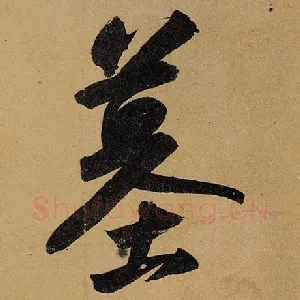 墓
Shufawang.CN